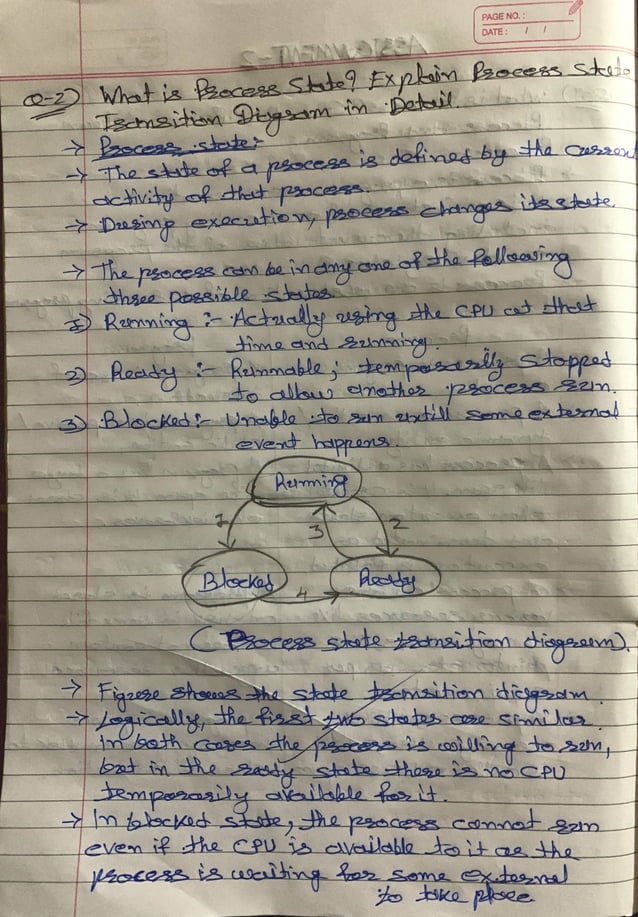 PAGE NO. :
DATE : / /
Q-2) What is Process State? Explain Process State
Transition Diagram in Detail.
→ Process state:-
→ The state of a process is defined by the current
activity of that process.
→ During execution, process changes its state.
→ The process can be in any one of the following
three possible states
1) Running :- Actually using the CPU at that
time and running.
2) Ready :- Runnable; temporarily stopped
to allow another process run.
3) Blocked:- Unable to run untill some external
event happens.
Running
1
3
2
Blocked
Ready
4
(Process state transition diagram).
→ Figure shows the state transition diagram.
→ Logically, the first two states are similar.
In both cases the process is willing to run,
but in the ready state there is no CPU
temporarily available for it.
→ In blocked state, the process cannot run
even if the CPU is available to it as the
process is waiting for some external
to take place